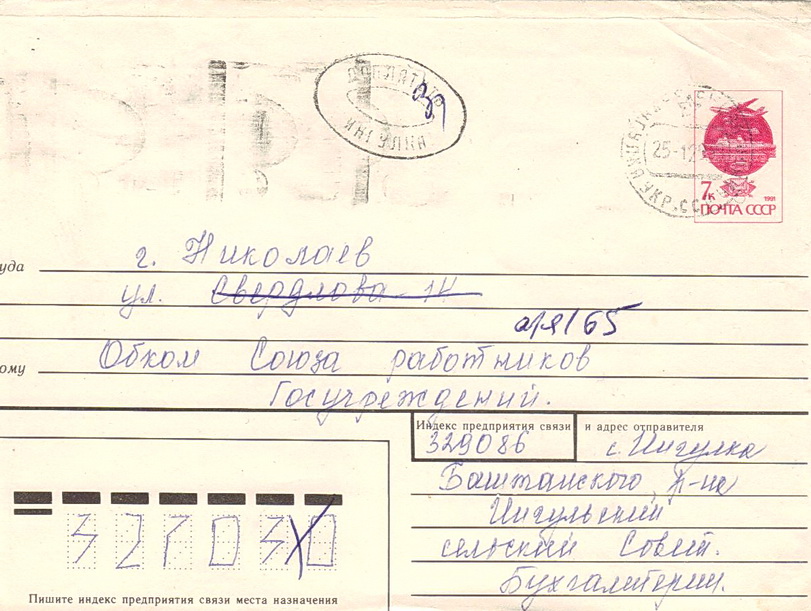 ДОПЛАТИТЬ
7к 1991
ПОЧТА СССР
25-1
УКР. ССР
уда г. Николаев
ул. Свердлова 14
а/я 165
ому Обком Союза работников
Госучреждений.
Индекс предприятия связи и адрес отправителя
329086 с. Ингулка
Баштанского р-на
Ингульский
сельский Совет.
Бухгалтерии.
Пишите индекс предприятия связи места назначения